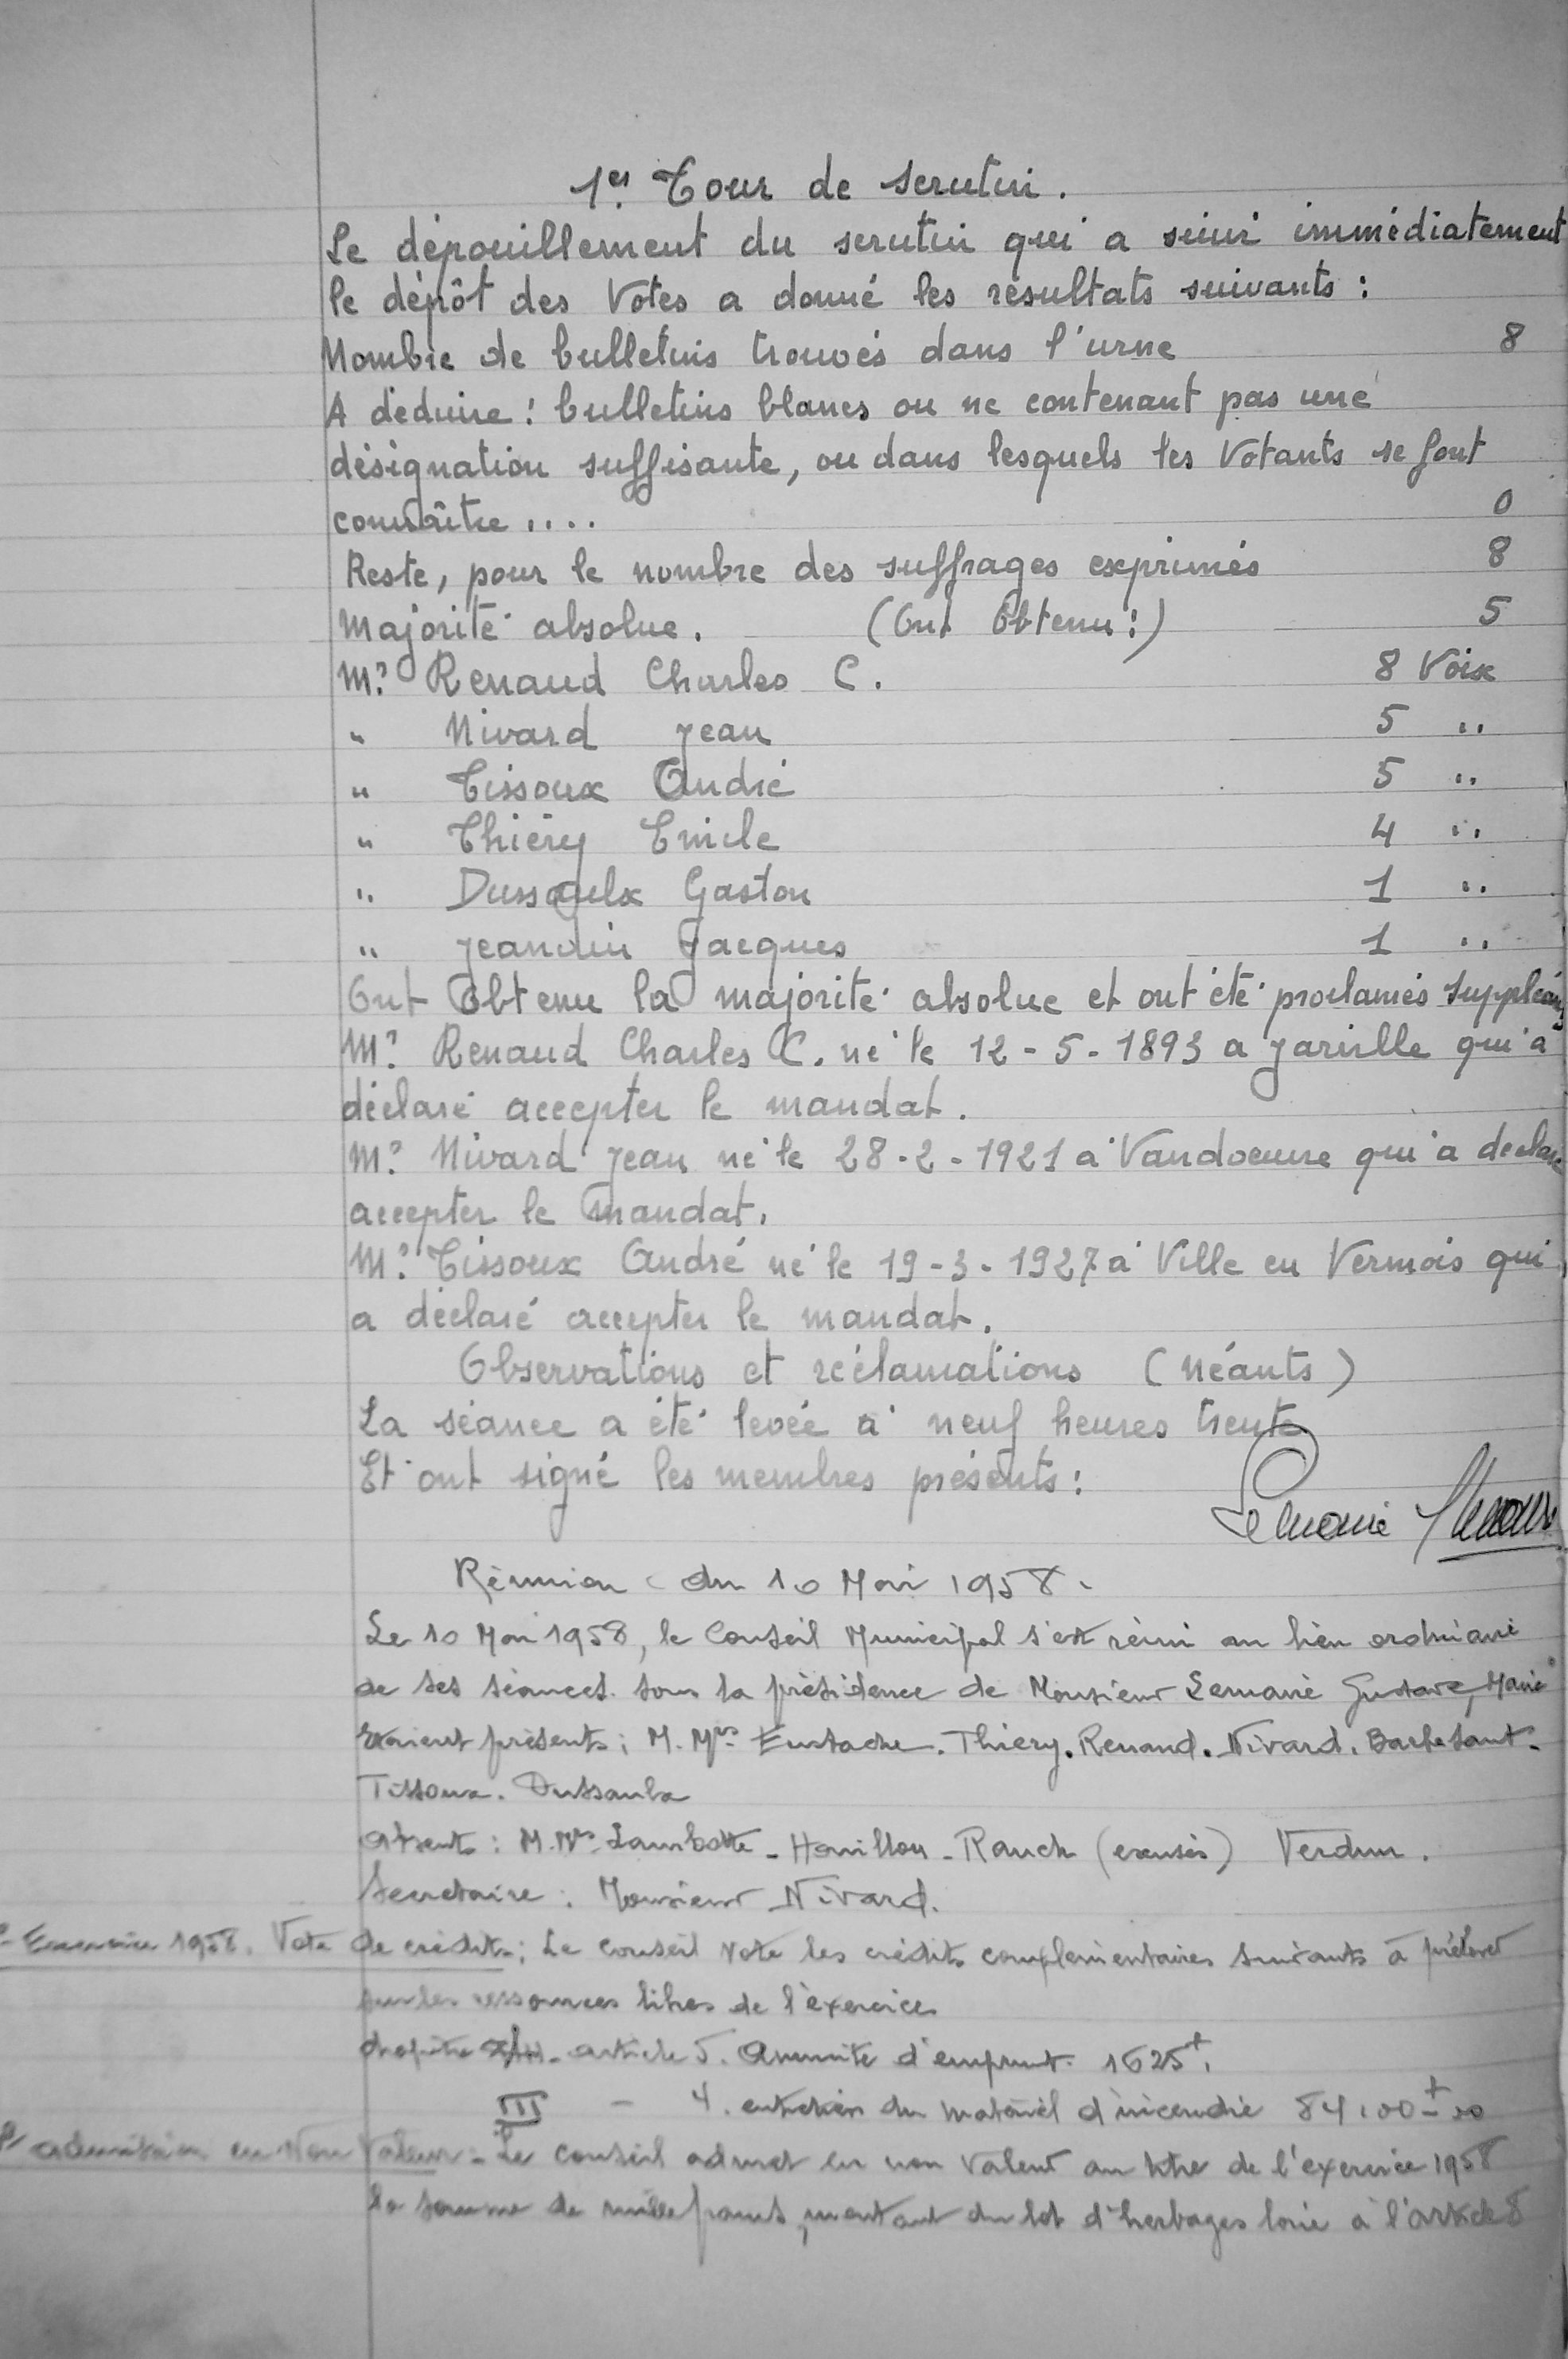 1er Tour de scrutin.
Le dépouillement du scrutin qui a suivi immédiatement
le dépôt des Votes a donné les résultats suivants :
Nombre de bulletins trouvés dans l'urne 8
A déduire : bulletins blancs ou ne contenant pas une
désignation suffisante, ou dans lesquels les Votants se font
connaître .... 0
Reste, pour le nombre des suffrages exprimés 8
Majorité absolue. (Ont Obtenu :) 5
Mr Renaud Charles C. 8 Voix
" Nivard Jean 5 "
" Tissoux André 5 "
" Thiéry Emile 4 "
" Dussaulx Gaston 1 "
" Jeandin Jacques 1 "
Ont Obtenu la majorité absolue et ont été proclamés
Mr Renaud Charles C. né le 12-5-1893 a Jarville qui a
déclaré accepter le mandat.
Mr Nivard Jean né le 28-2-1921 à Vandoeuvre qui a déclaré
accepter le mandat.
Mr Tissoux André né le 19-3-1927 à Ville en Vermois qui
a déclaré accepter le mandat.
Observations et réclamations (Néants)
La séance a été levée à neuf heures trente
Et ont signé les membres présents :
Lemaire
Réunion du 10 Mai 1958.
Le 10 Mai 1958, le Conseil Municipal s'est réuni au lieu ordinaire
de ses séances sous la présidence de Monsieur Lemaire Gustave, Maire
Etaient présents : M. Mrs Eustache. Thiéry. Renaud. Nivard.
Tissoux. Dussaulx
Absents : M. Mrs Lambotte - Houillon - Rauch (excusés) Verdun.
Secrétaire : Monsieur Nivard.
Exercice 1958. Vote de crédits : Le Conseil vote les crédits complémentaires suivants à prélever
sur les ressources libres de l'exercice
chapitre article 5. Annuité d'emprunt. 1625f.
III - 4. entretien du matériel d'incendie
admission en Non Valeur - Le Conseil admet en non valeur au titre de l'exercice 1958
la somme de mille francs, montant du lot d'herbages loué à l'article 8